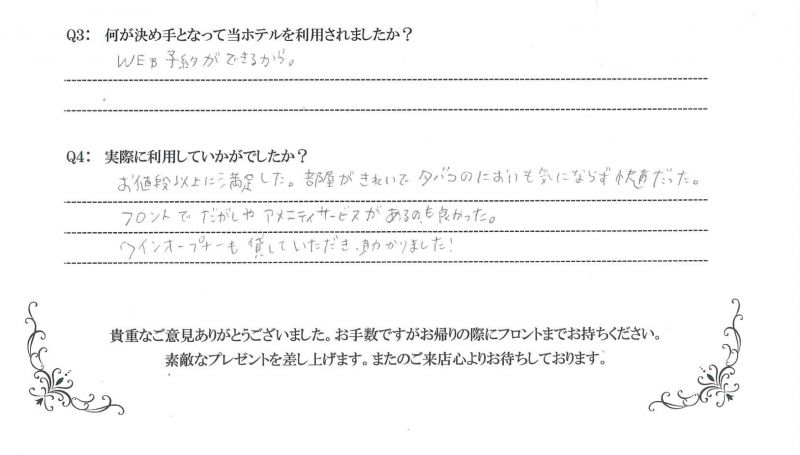 Q3: 何が決め手となって当ホテルを利用されましたか？
WEB予約ができるから。
Q4: 実際に利用していかがでしたか？
お値段以上に満足した。部屋がきれいでタバコのにおいも気にならず快適だった。
フロントでだがしやアメニティサービスがあるのも良かった。
ワインオープナーも貸していただき、助かりました！
貴重なご意見ありがとうございました。お手数ですがお帰りの際にフロントまでお持ちください。
素敵なプレゼントを差し上げます。またのご来店心よりお待ちしております。